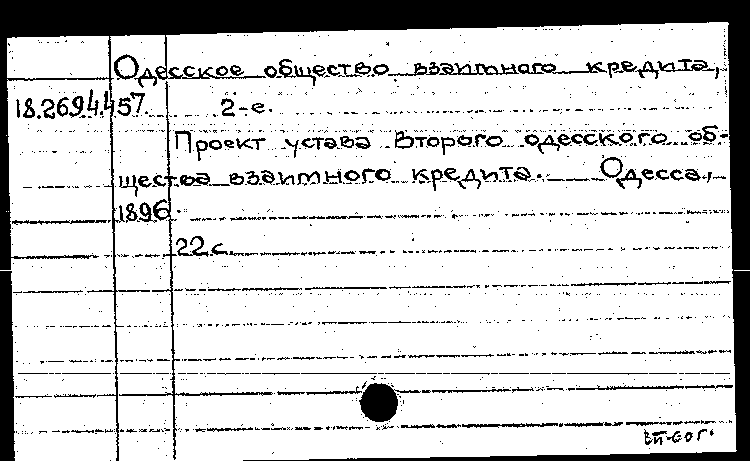 Одесское общество взаимного кредита,
18.269.4.457 2-е.
Проект устава Второго одесского об-
щества взаимного кредита. Одесса,
1896.
22 с.